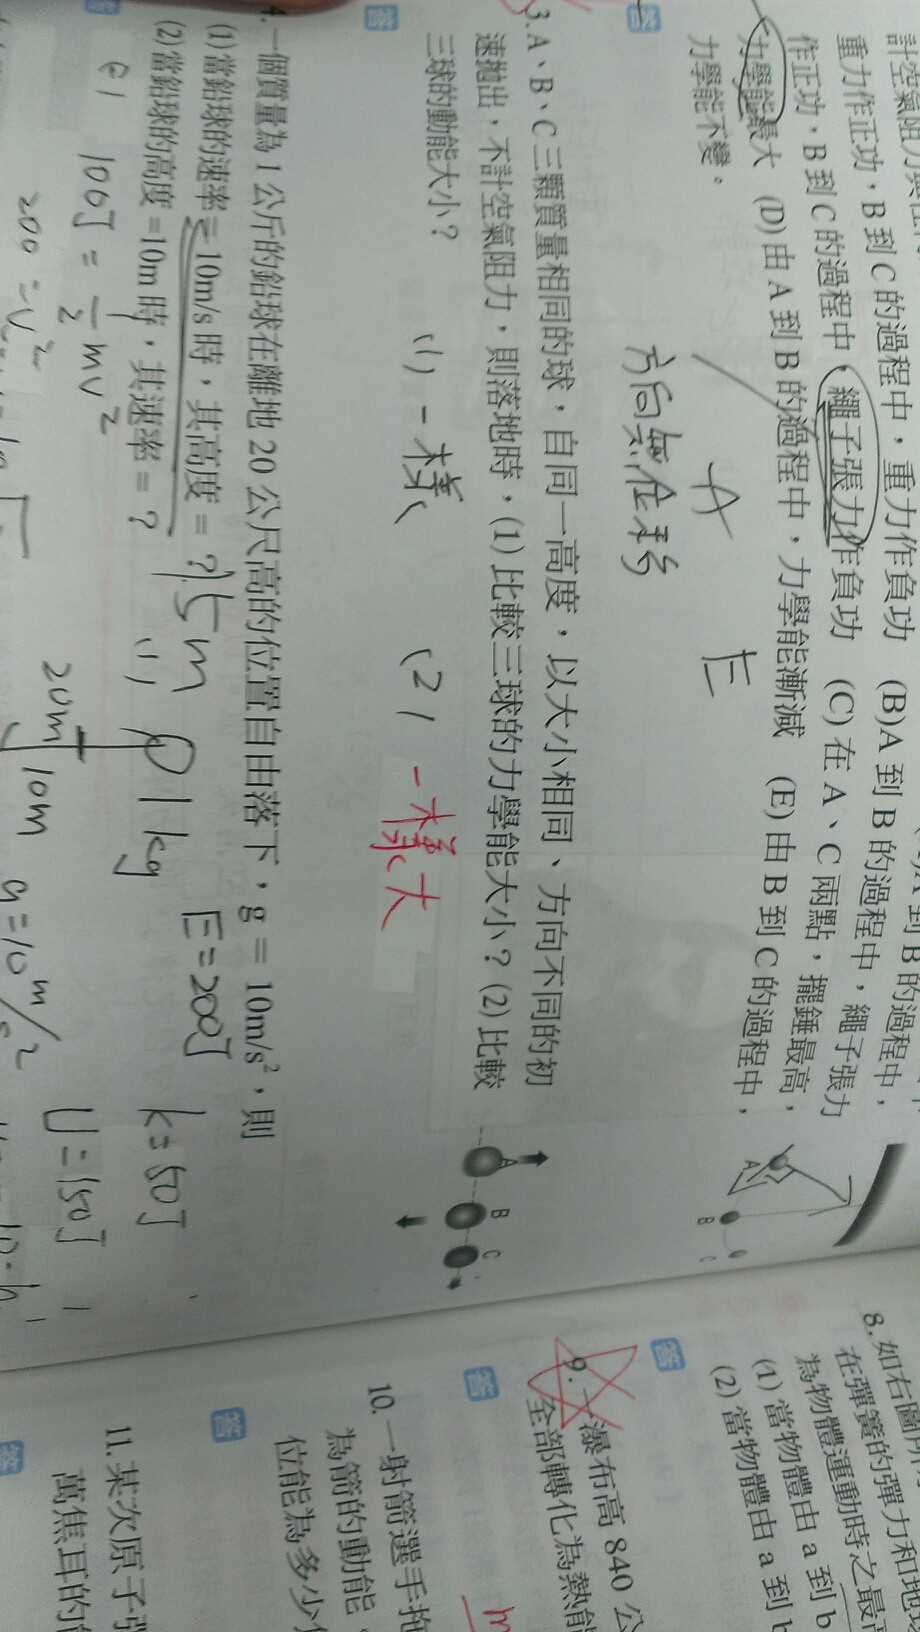 重力作正功，B到C的過程中，重力作負功 (B)A到B的過程中，繩子張力
作正功，B到C的過程中，繩子張力作負功 (C)在A、C兩點，擺錘最高，
力學能最大 (D)由A到B的過程中，力學能漸減 (E)由B到C的過程中，
力學能不變。
A
E
A
B
C
答
方向無位移
3.A、B、C三顆質量相同的球，自同一高度，以大小相同、方向不同的初
速拋出，不計空氣阻力，則落地時，(1)比較三球的力學能大小？(2)比較
三球的動能大小？
A
B
C
(1) 一樣
(2) 一樣大
答
4.一個質量為1公斤的鉛球在離地20公尺高的位置自由落下，g=10m/s²，則
(1)當鉛球的速率=10m/s時，其高度=？15m
E=200J
(2)當鉛球的高度=10m時，其速率=？
(1)
1kg
k=50J
100J=½mv²
20m
10m
U=150J
200=v²
g=10m/s²
8.如右圖所
在彈簧的彈力和地球
為物體運動時之最高
(1)當物體由a到b
(2)當物體由a到b
答
9.一瀑布高840公
全部轉化為熱能
答
10.一射箭選手拖
為箭的動能，
位能為多少
答
11.某次原子彈
萬焦耳的
答